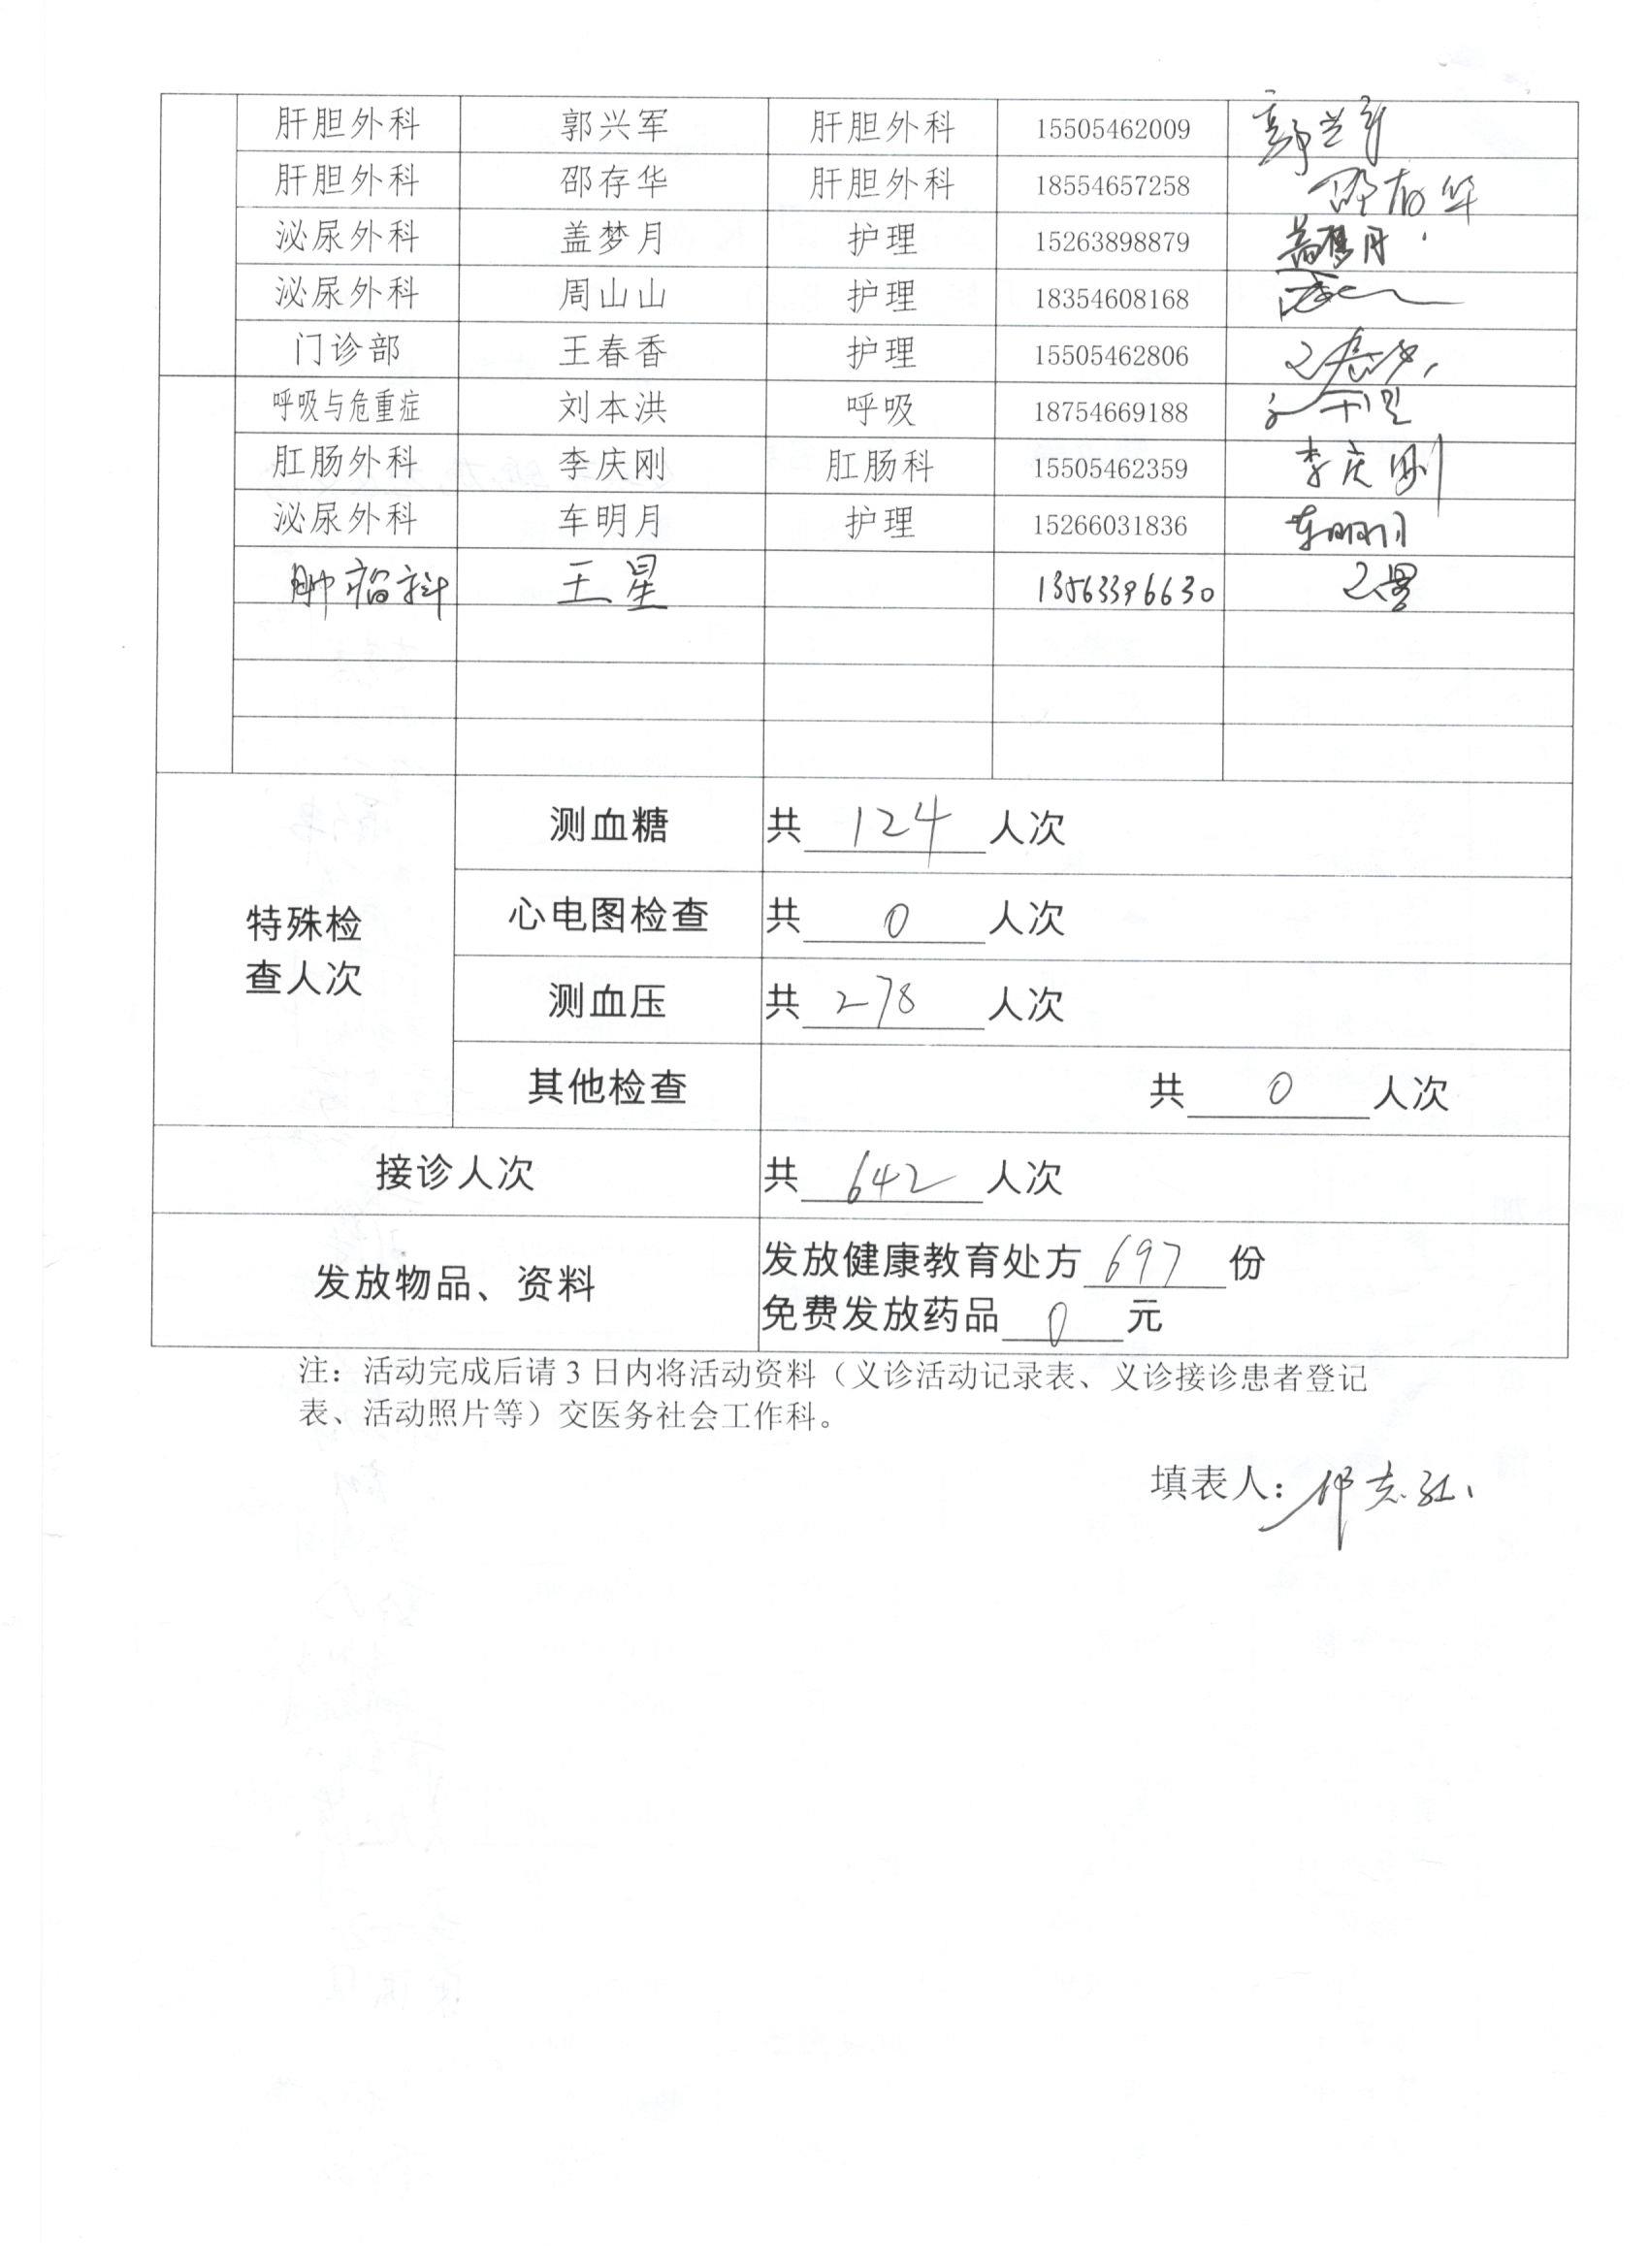 肝胆外科 郭兴军 肝胆外科 15505462009 郭兴军
肝胆外科 邵存华 肝胆外科 18554657258 邵存华
泌尿外科 盖梦月 护理 15263898879 盖梦月
泌尿外科 周山山 护理 18354608168
门诊部 王春香 护理 15505462806
呼吸与危重症 刘本洪 呼吸 18754669188
肛肠外科 李庆刚 肛肠科 15505462359 李庆刚
泌尿外科 车明月 护理 15266031836 车明月
肿瘤科 王星 13563396630 王星
特殊检
查人次
测血糖 共 124 人次
心电图检查 共 0 人次
测血压 共 278 人次
其他检查 共 0 人次
接诊人次 共 642 人次
发放物品、资料
发放健康教育处方 697 份
免费发放药品 0 元
注：活动完成后请 3 日内将活动资料（义诊活动记录表、义诊接诊患者登记
表、活动照片等）交医务社会工作科。
填表人：